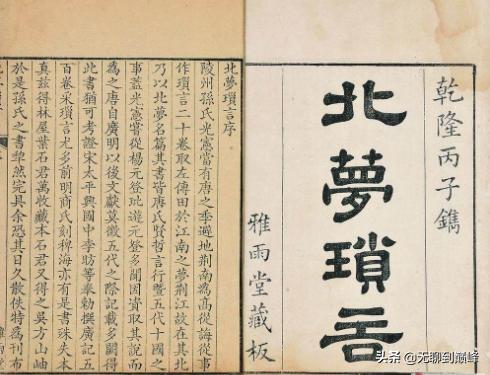 乾隆丙子鐫
北夢瑣言
雅雨堂藏板
北夢瑣言序
陵州孫氏光憲當有唐之季避地荆南為高從誨從事
作瑣言二十卷取左傳田於江南之夢荆江故在其北
乃以北夢名篇其書皆唐氏賢哲言行暨五代十國之
事蓋光憲嘗從楊元登玭遊元登多聞因資取其說而
為之唐自廣明以後文獻莫徵五代之際記載多闕得
此書猶可考證宋太平興國中李昉等奉勅撰廣記五
百卷采瑣言尤多前明商氏刻稗海亦有是書殊失本
真兹得林屋葉石君萬收藏本石君又得之吳方山岫
於是孫氏之書犂然完具余恐其日久散佚特為刊布
头条 @无聊到巅峰